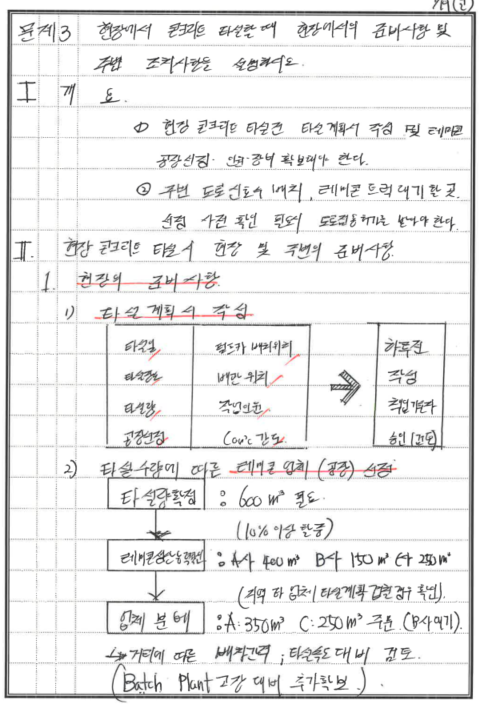 문제3 현장에서 콘크리트 타설할 때 현장에서의 준비사항 및
주변 조치사항을 설명하시오.
I 개 요.
① 현장 콘크리트 타설전 타설계획서 작성 및 레미콘
공장선정. 인원·장비 확보해야 한다.
② 주변 도로 신호수 배치, 레미콘 트럭 대기할 곳.
선정 사전 확인 필요시 도로점용허가를 받아야한다.
II. 현장 콘크리트 타설시 현장 및 주변의 준비사항.
1. 현장의 준비사항
1) 타설계획서 작성
타설일 펌프카 배치위치 하루전
배관 위치 작성
타설량 작업인원
공장선정 Conic 강도. 승인(감독)
2) 타설수량에 따른 레미콘 업체(공장) 선정
타설량확정 : 600 m³ 필요.
(10% 이상 할증)
: A사 400 m³ B사 150 m³ C사 250 m³
(지역 타 업체 타설계획 겹친경우 확인).
업체 분배 : A: 350m³ C: 250 m³ 주문. (B사 대기).
↳ 거리에 따른 배차간격, 타설속도 대비 검토.
(Batch Plant 고장 대비 추가확보.)